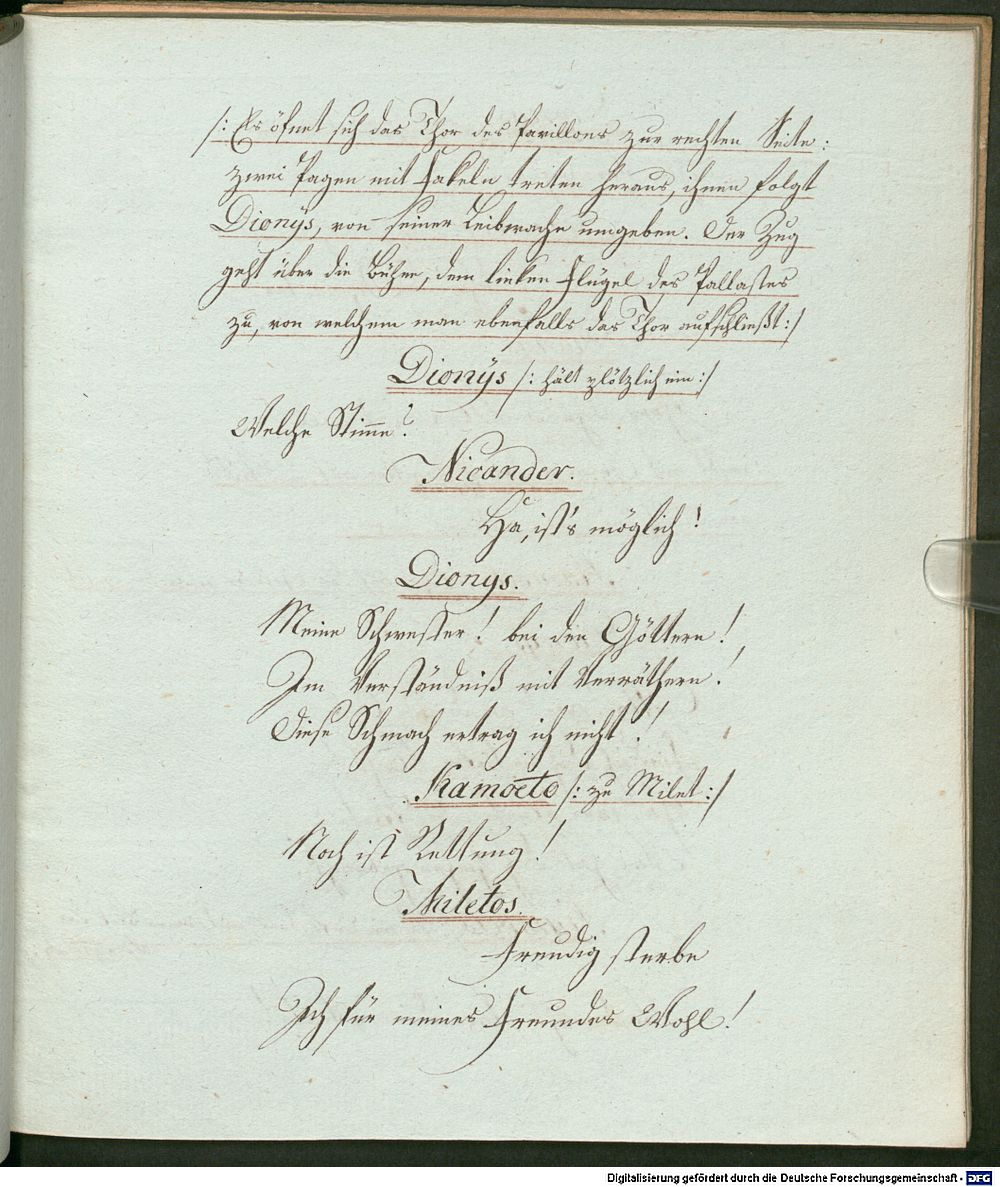 /: Es öfnet sich das Thor des Pavillons zur rechten Seite:
zwei Pagen mit Fakeln treten heraus, ihnen folgt
Dionÿs, von seiner Leibwache umgeben. Der Zug
geht über die Bühne, dem linken Flügel des Pallastes
zu, von welchem man ebenfalls das Thor aufschließt:/
Dionÿs /: hält plötzlich ein:/
Welche Stimme?
Nicander.
Ha, ist's möglich!
Dionys.
Meine Schwester! bei den Göttern!
Im Verständniß mit Verräthern!
Diese Schmach ertrag ich nicht!
Kamoeto /: zu Milet:/
Noch ist Rettung!
Miletos.
Freudig sterbe
Ich für meines Freundes Wohl!
Digitalisierung gefördert durch die Deutsche Forschungsgemeinschaft - DFG